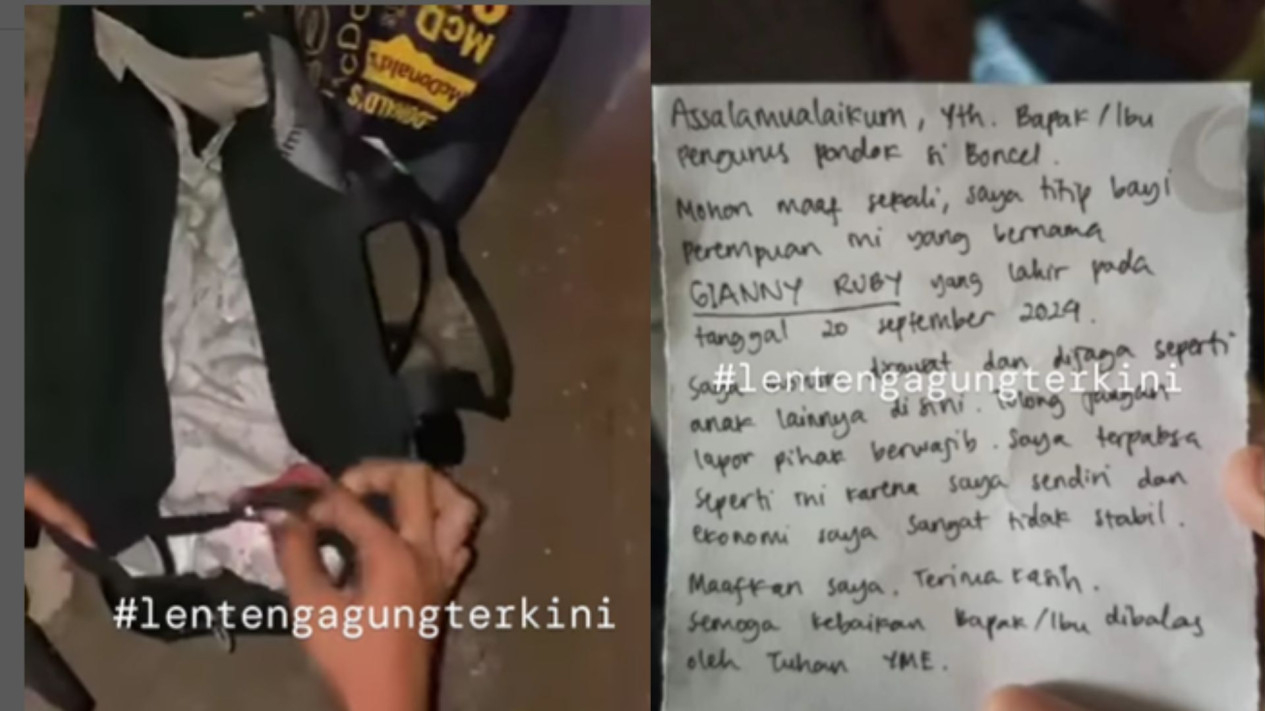 McD
McDo
McDonald's
DONALD'S
#lentengagungterkini
Assalamualaikum, Yth. Bapak/Ibu
Pengurus pondok si Boncel.
Mohon maaf sekali, saya titip bayi
perempuan ini yang bernama
GIANNY RUBY yang lahir pada
tanggal 20 september 2024.
Saya mohon dirawat dan dijaga seperti
#lentengagungterkini
anak lainnya disini. Tolong jangan
lapor pihak berwajib. Saya terpaksa
seperti ini karena saya sendiri dan
ekonomi saya sangat tidak stabil.
Maafkan saya. Terima kasih.
Semoga kebaikan Bapak/Ibu dibalas
oleh Tuhan YME.